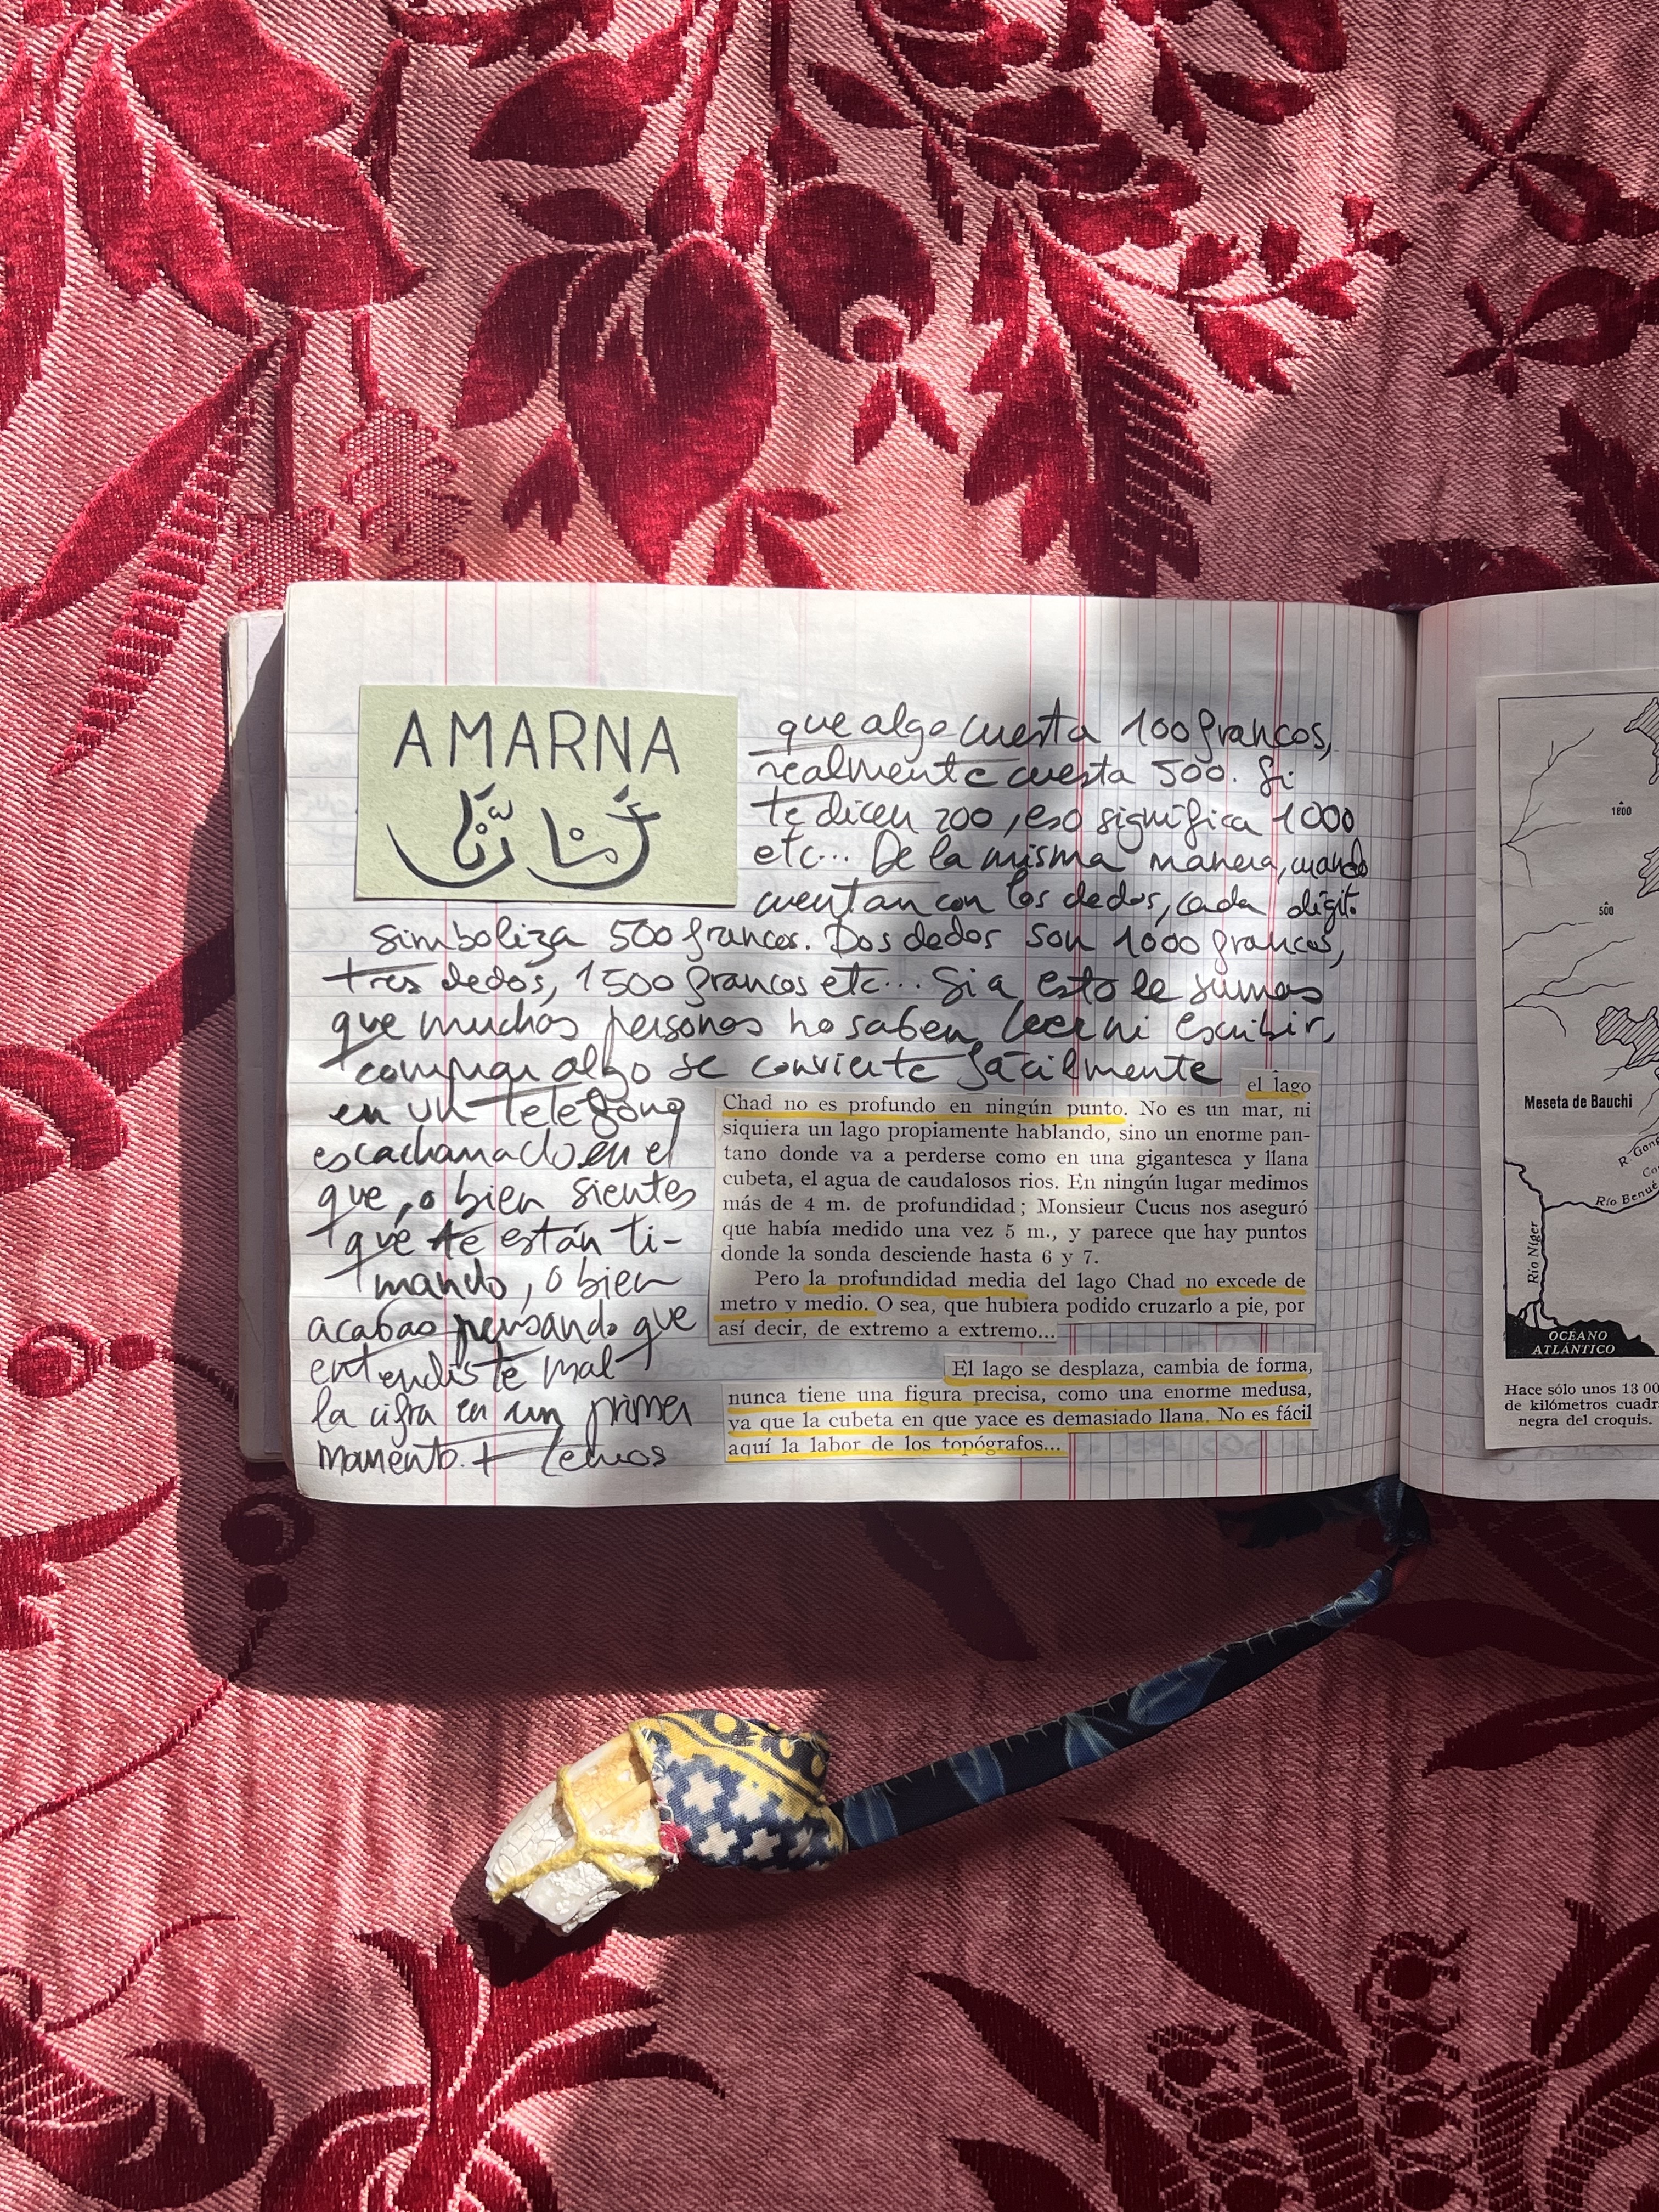 AMARNA
que algo cuesta 100 francos,
realmente cuesta 500. Si
te dicen 200, eso significa 1000
etc... De la misma manera, cuando
cuentan con los dedos, cada dígito
simboliza 500 francos. Dos dedos son 1000 francos,
tres dedos, 1500 francos etc... Si a esto le sumas
que muchas personas no saben leer ni escribir,
comprar algo se convierte fácilmente
en un teléfono
escacharrado en el
que, o bien sientes
que te están ti-
mando, o bien
acabas pensando que
entendiste mal
la cifra en un primer
momento. +
el lago
Chad no es profundo en ningún punto. No es un mar, ni
siquiera un lago propiamente hablando, sino un enorme pan-
tano donde va a perderse como en una gigantesca y llana
cubeta, el agua de caudalosos rios. En ningún lugar medimos
más de 4 m. de profundidad; Monsieur Cucus nos aseguró
que había medido una vez 5 m., y parece que hay puntos
donde la sonda desciende hasta 6 y 7.
Pero la profundidad media del lago Chad no excede de
metro y medio. O sea, que hubiera podido cruzarlo a pie, por
así decir, de extremo a extremo...
El lago se desplaza, cambia de forma,
nunca tiene una figura precisa, como una enorme medusa,
ya que la cubeta en que yace es demasiado llana. No es fácil
aquí la labor de los topógrafos...
1800
500
Meseta de Bauchi
R. Gong
Río Benué
Río Níger
OCÉANO
ATLÁNTICO
Hace sólo unos 13 00
de kilómetros cuadr
negra del croquis.